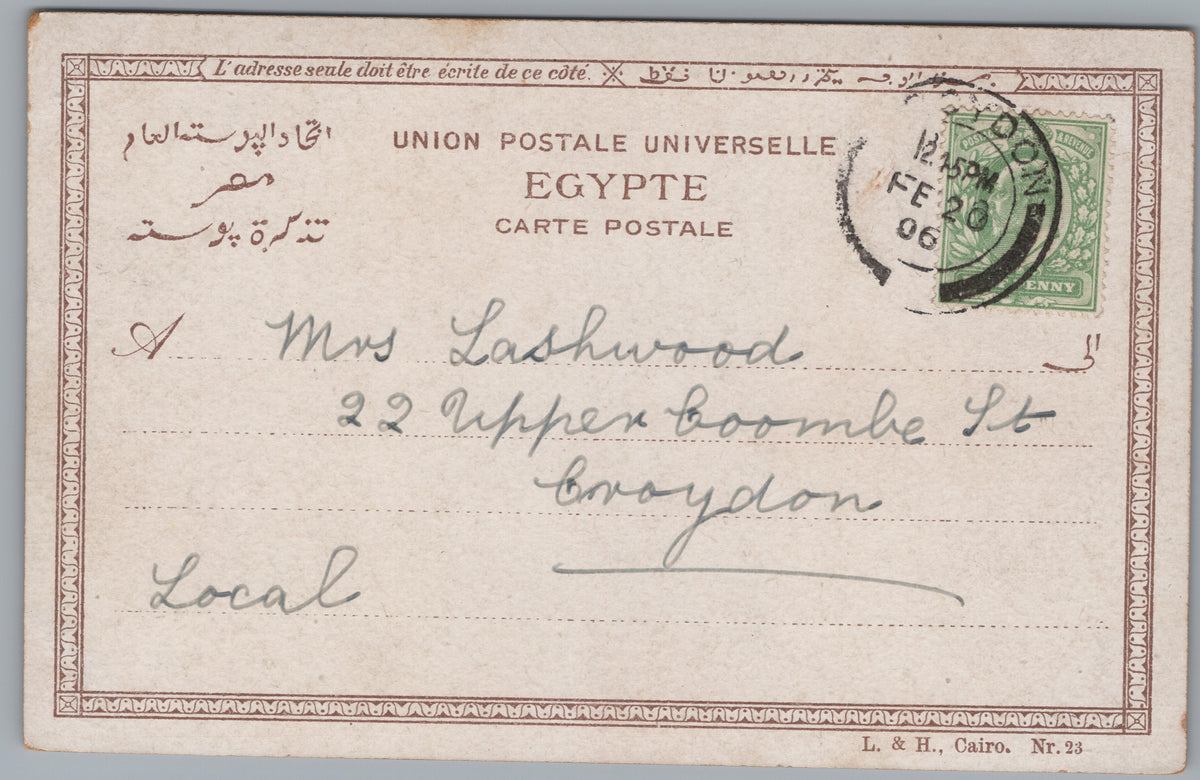 L'adresse seule doit être écrite de ce côté.
اتحاد البوسته العام
مصر
تذكرة بوسته
UNION POSTALE UNIVERSELLE
EGYPTE
CARTE POSTALE
POSTAGE & REVENUE
PENNY
YDON
12.15PM
FE 20
06
A Mrs Lashwood الى
22 Upper Coombe St
Croydon
Local
L. & H., Cairo. Nr. 23